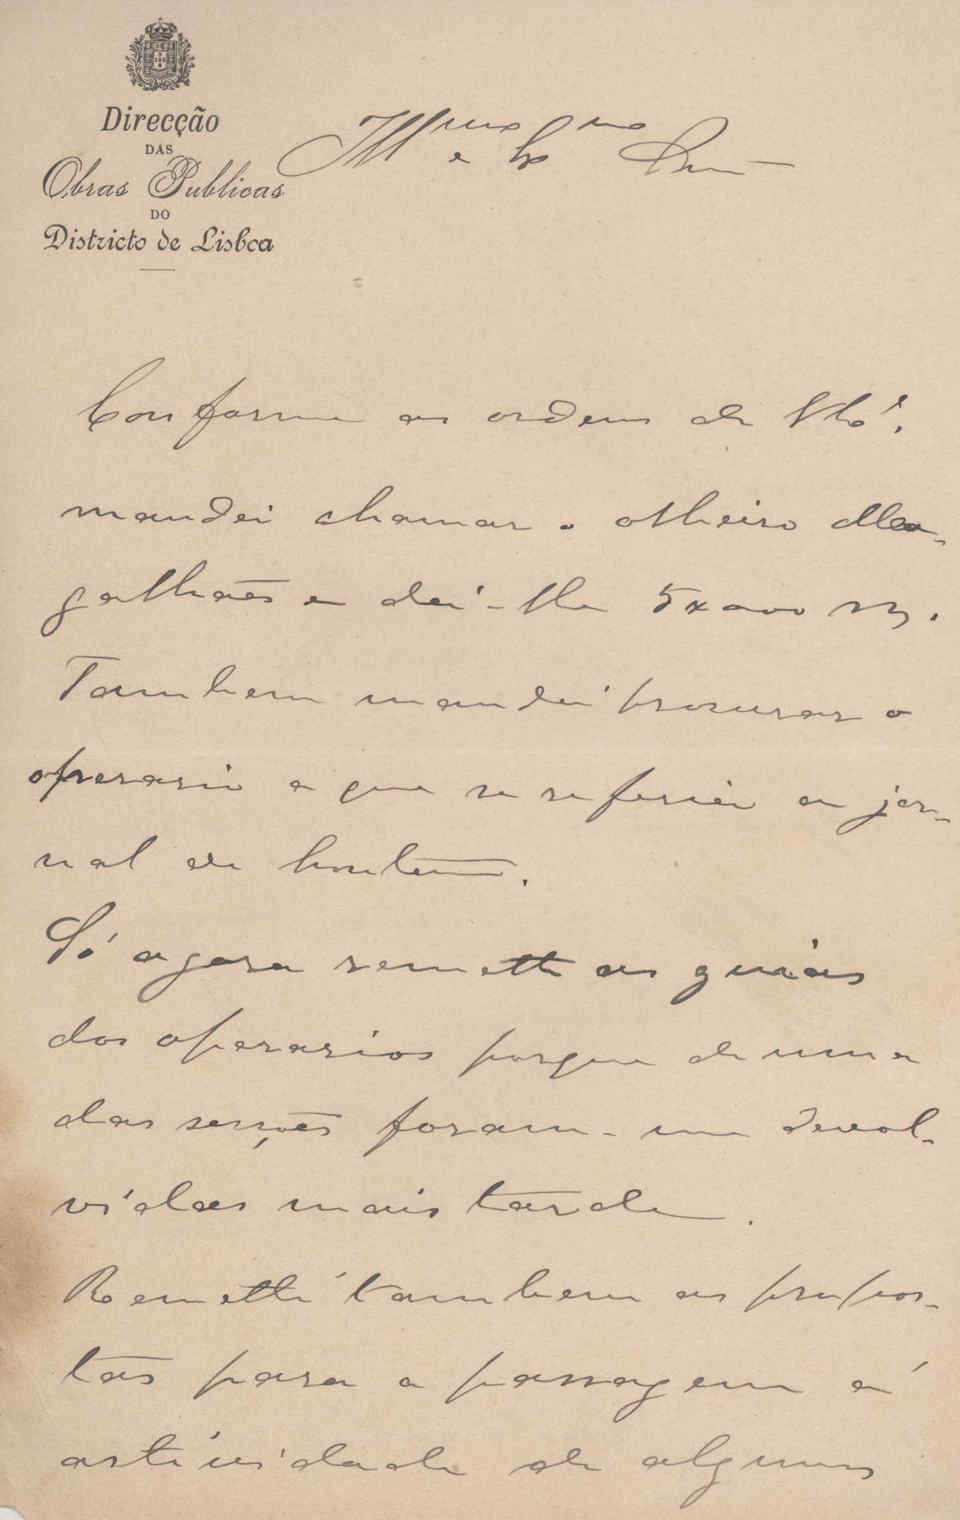 Direcção
DAS
Obras Publicas
DO
Districto de Lisboa
Ill.mo e Ex.mo Snr.
Conforme as ordens de V. Ex.ª
mandei chamar o olheiro Ma-
galhães e dei-lhe 5x000 rs.
Tambem mandei procurar o
operario a que se referia o jor-
nal de hontem.
Só agora remetto as guias
dos operarios porque de uma
das secções foram-me devol-
vidas mais tarde.
Remetti tambem as propos-
tas para a passagem á
actividade de alguns